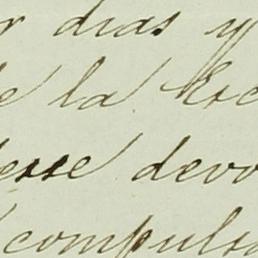 r dias y
de la Esc
esse devo
compulsa